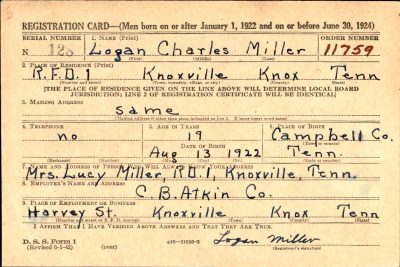 REGISTRATION CARD—(Men born on or after January 1, 1922 and on or before June 30, 1924)
SERIAL NUMBER 1. NAME (Print) ORDER NUMBER
N 128 Logan Charles Miller 11759
(First) (Middle) (Last)
2. PLACE OF RESIDENCE (Print)
R.F.D.1 Knoxville Knox Tenn
(Number and street) (Town, township, village, or city) (County) (State)
[THE PLACE OF RESIDENCE GIVEN ON THE LINE ABOVE WILL DETERMINE LOCAL BOARD
JURISDICTION; LINE 2 OF REGISTRATION CERTIFICATE WILL BE IDENTICAL]
3. MAILING ADDRESS
same
4. TELEPHONE 5. AGE IN YEARS 6. PLACE OF BIRTH
no 19 Campbell Co.
DATE OF BIRTH (Town or county)
Aug 13 1922 Tenn.
(Exchange) (Number) (Mo.) (Day) (Yr.) (State or country)
7. NAME AND ADDRESS OF PERSON WHO WILL ALWAYS KNOW YOUR ADDRESS
Mrs. Lucy Miller, RD.1, Knoxville, Tenn.
8. EMPLOYER'S NAME AND ADDRESS
C.B. Atkin Co.
9. PLACE OF EMPLOYMENT OR BUSINESS
Harvey St. Knoxville Knox Tenn
(Number and street) (Town) (County) (State)
I AFFIRM THAT I HAVE VERIFIED ABOVE ANSWERS AND THAT THEY ARE TRUE.
D. S. S. Form 1
(Revised 6-1-42) (over) Logan Miller
(Registrant's signature)